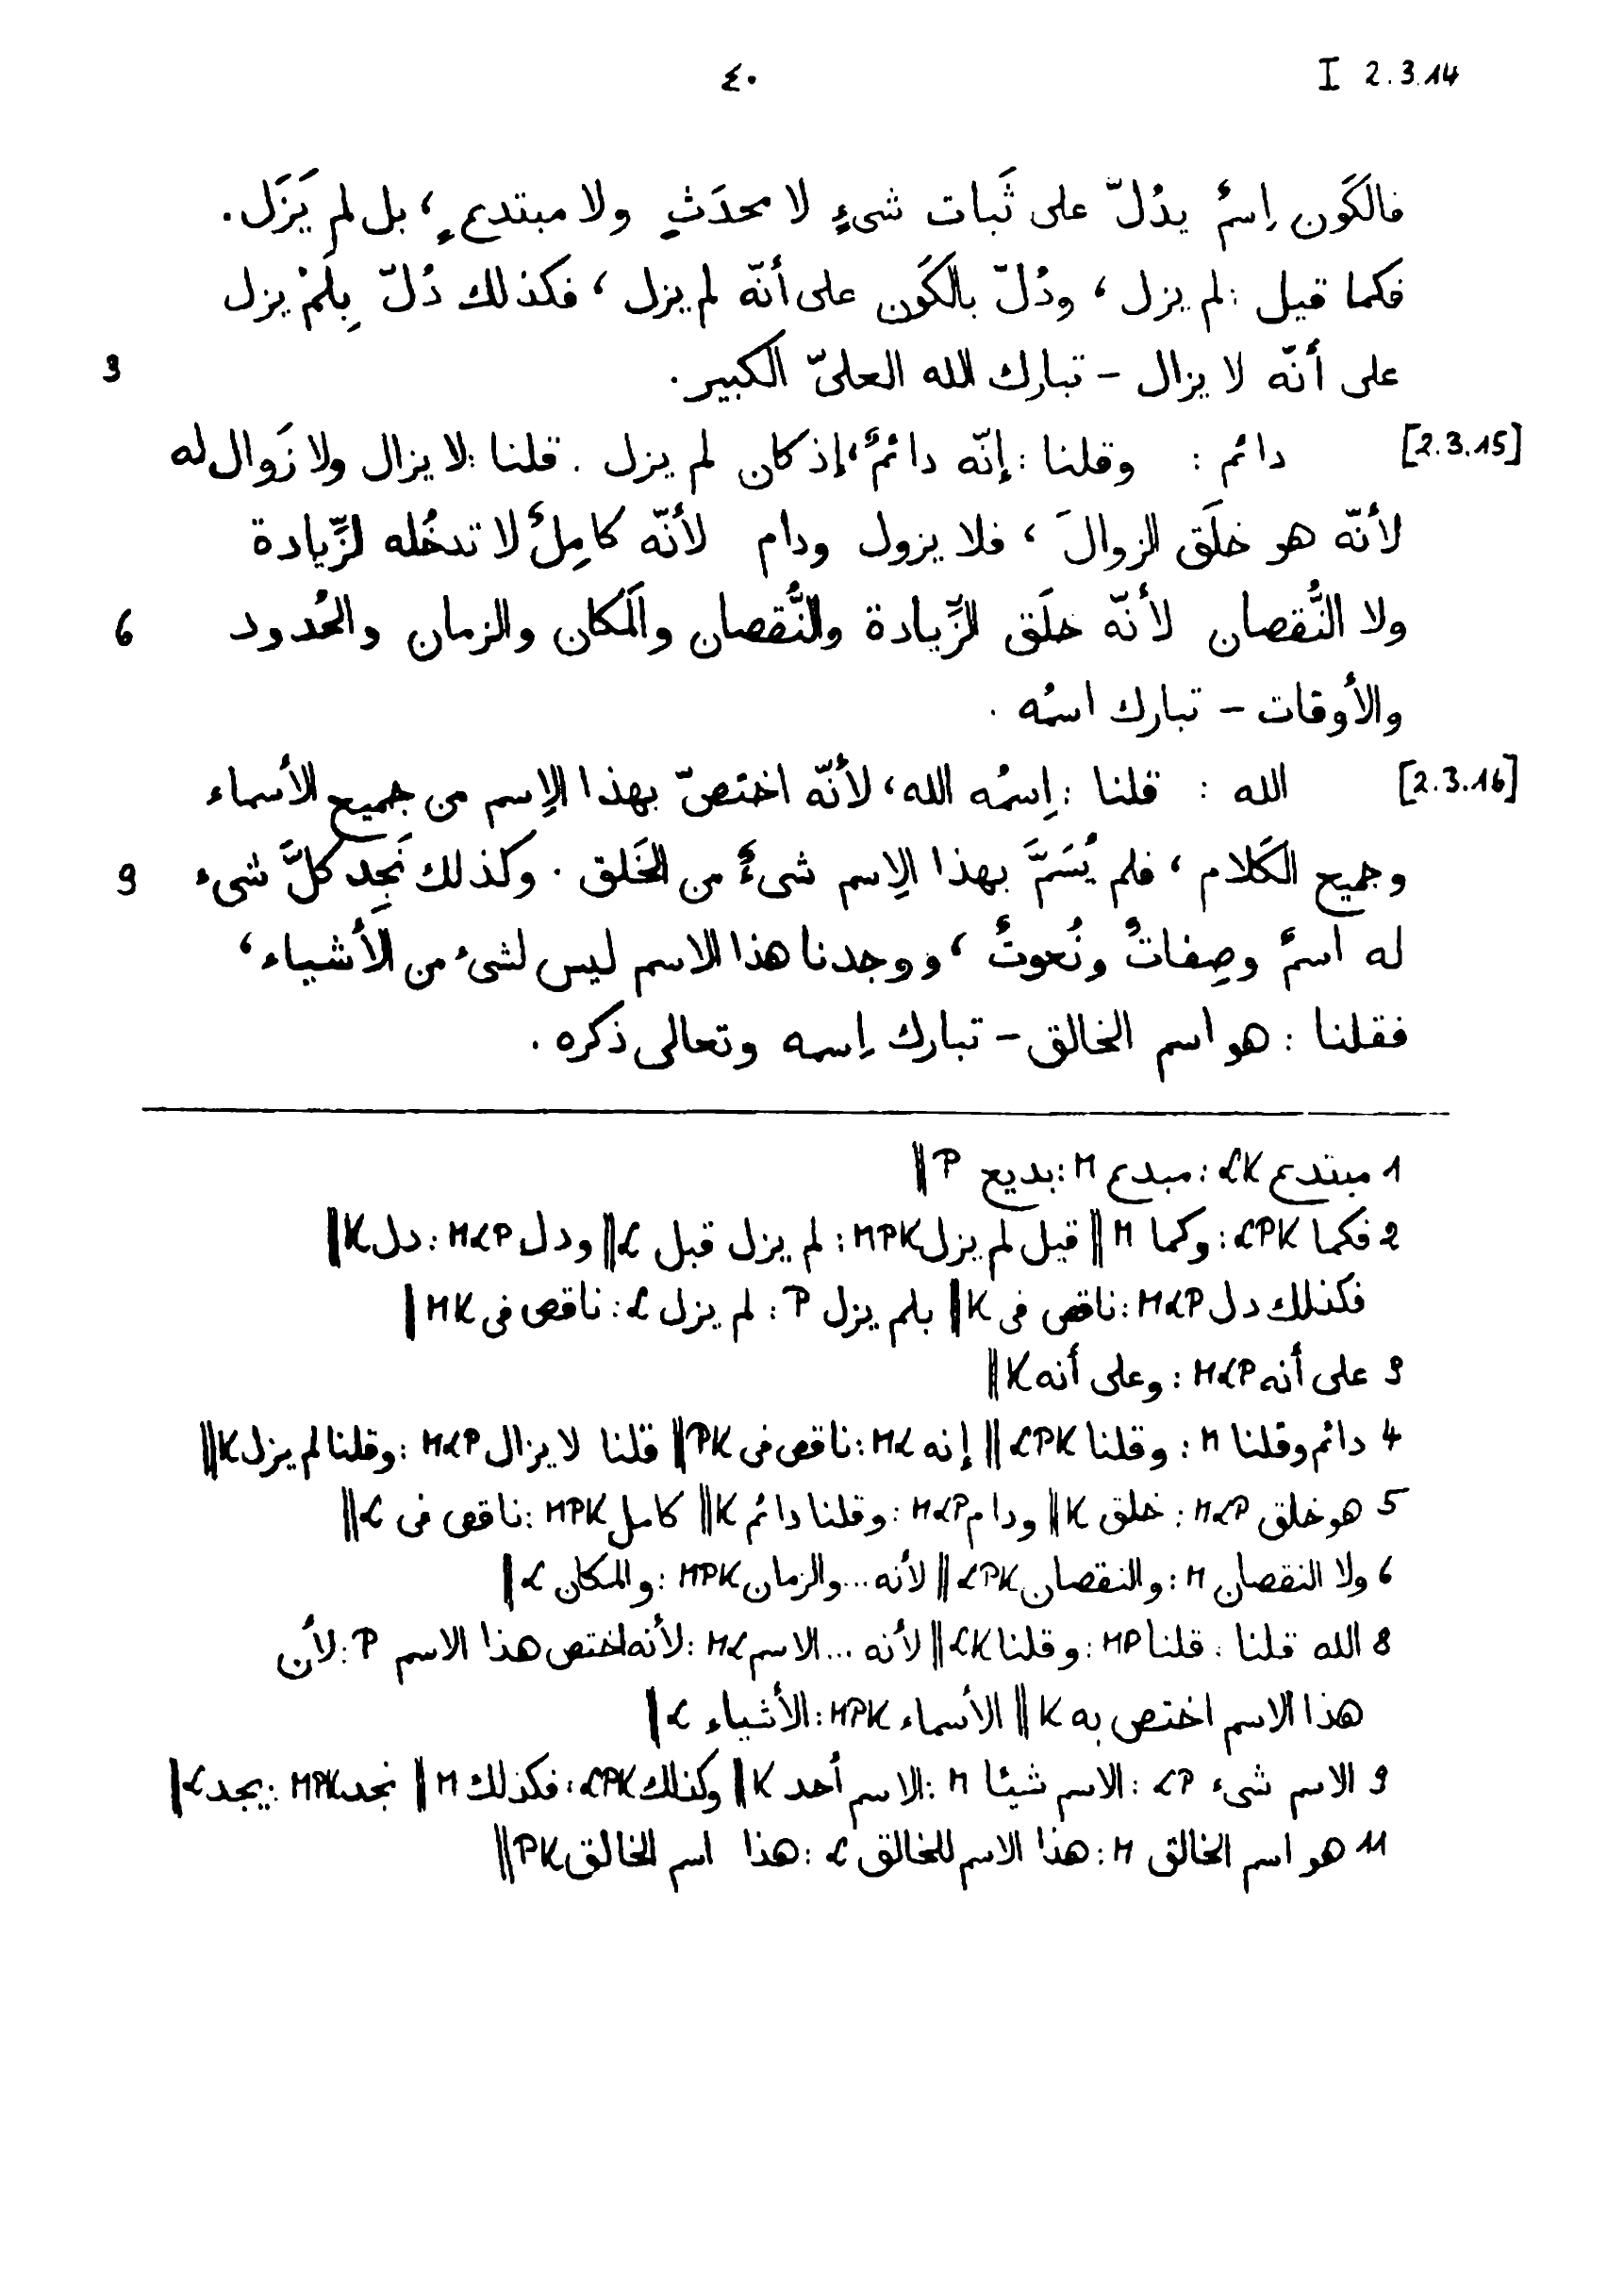 ٤٠
I 2.3.14
فالكَون اِسمٌ يدُلّ على ثَبات شىءٍ لا محدَثٍ ولا مبتدعٍ، بل لم يَزَل.
فكما قيل : لم يزل، ودُلّ بالكَون على أنّه لم يزل، فكذلك دُلّ بِلَمْ يزل
3 على أنّه لا يزال – تبارك الله العلىّ الكبير.
[2.3.15] دائم : وقلنا : إنّه دائمٌ، إذ كان لم يزل . قلنا : لا يزال ولا زَوال له
لأنّه هو خلَق الزوالَ، فلا يزول ودام لأنّه كامِلٌ لا تدخُله الزِّيادة
6 ولا النُّقصان لأنّه خلَق الزِّيادة والنُّقصان والمَكان والزمان والحُدود
والأوقات – تبارك اسمُه .
[2.3.16] الله : قلنا : اِسمُه الله، لأنّه اختصّ بهذا الاِسم من جميع الأسماء
9 وجميع الكَلام، فلم يُسَمَّ بهذا الاِسم شىءٌ من الخَلق . وكذلك نَجِد كلَّ شىء
له اسمٌ وصِفاتٌ ونُعوتٌ، ووجدنا هذا الاسم ليس لشىء من الأشياء،
فقلنا : هو اسم الخالق – تبارك اِسمه وتعالى ذكره .
1 مبتدع LK : مبدع M : بديع P ||
2 فكما LPK : وكما M || قيل لم يزل MPK : لم يزل قبل L || ودل MLP : دل K ||
فكذلك دل MLP : ناقص فى K || بلم يزل P : لم يزل L : ناقص فى MK ||
3 على أنه MLP : وعلى أنه K ||
4 دائم وقلنا M : وقلنا LPK || إنه ML : ناقص فى PK || قلنا لا يزال MLP : وقلنا لم يزل K ||
5 هو خلق MLP : خلق K || ودام MLP : وقلنا دائم K || كامل MPK : ناقص فى L ||
6 ولا النقصان M : والنقصان LPK || لأنه ... والزمان MPK : والمكان L ||
8 الله قلنا : قلنا MP : وقلنا LK || لأنه ... الاسم ML : لأنه اختص هذا الاسم P : لأن
هذا الاسم اختص به K || الأسماء MPK : الأشياء L ||
9 الاسم شىء LP : الاسم شيئا M : الاسم أحد K || وكذلك LPK : فكذلك M || نجد MPK : يجد L ||
11 هو اسم الخالق M : هذا الاسم للخالق L : هذا اسم الخالق PK ||